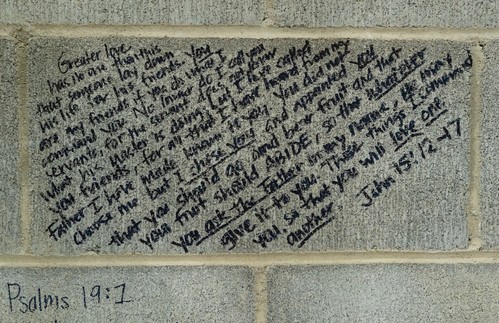 Greater love
has no one than this
that someone lay down
his life for his friends. You
are my friends if you do what I
command you. No longer do I call you
servants, for the servant does not know
what his master is doing; but I have called
you friends, for all that I have heard from my
Father I have made known to you. You did not
choose me but I chose you and appointed you
that you should go and bear fruit and that
your fruit should ABIDE, so that whatever
you ask the Father in my name, He may
give it to you. These things I command
you, so that you will love one
another
John 15:12-17
Psalms 19:1